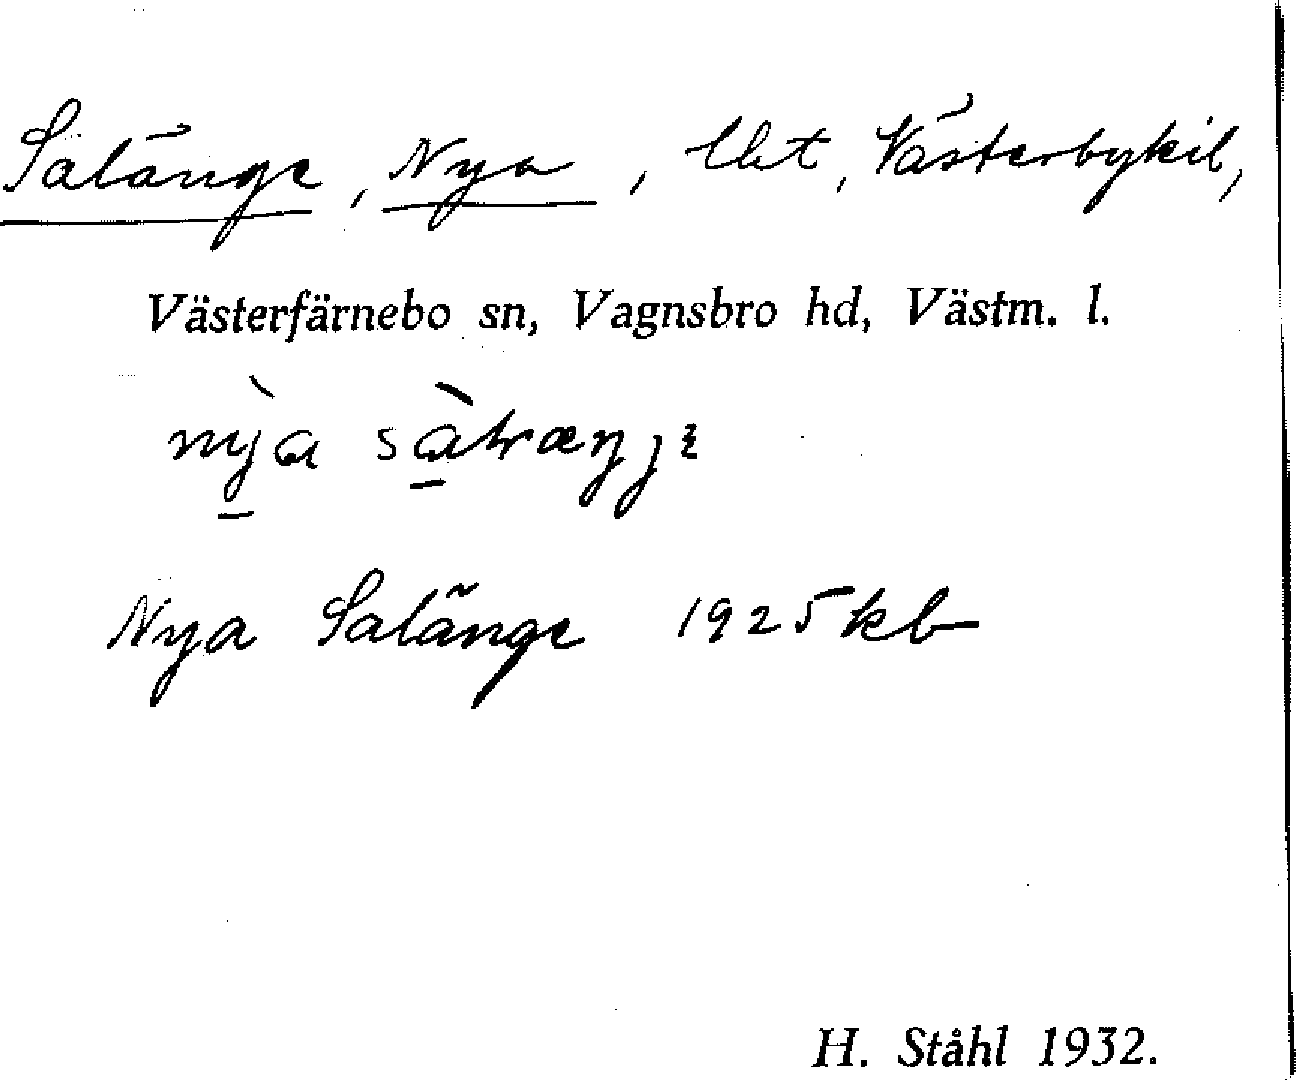 Salänge, Nya, lht, Västerbykil,
Västerfärnebo sn, Vagnsbro hd, Västm. l.
Nya Salänge 1925 kb
H. Ståhl 1932.